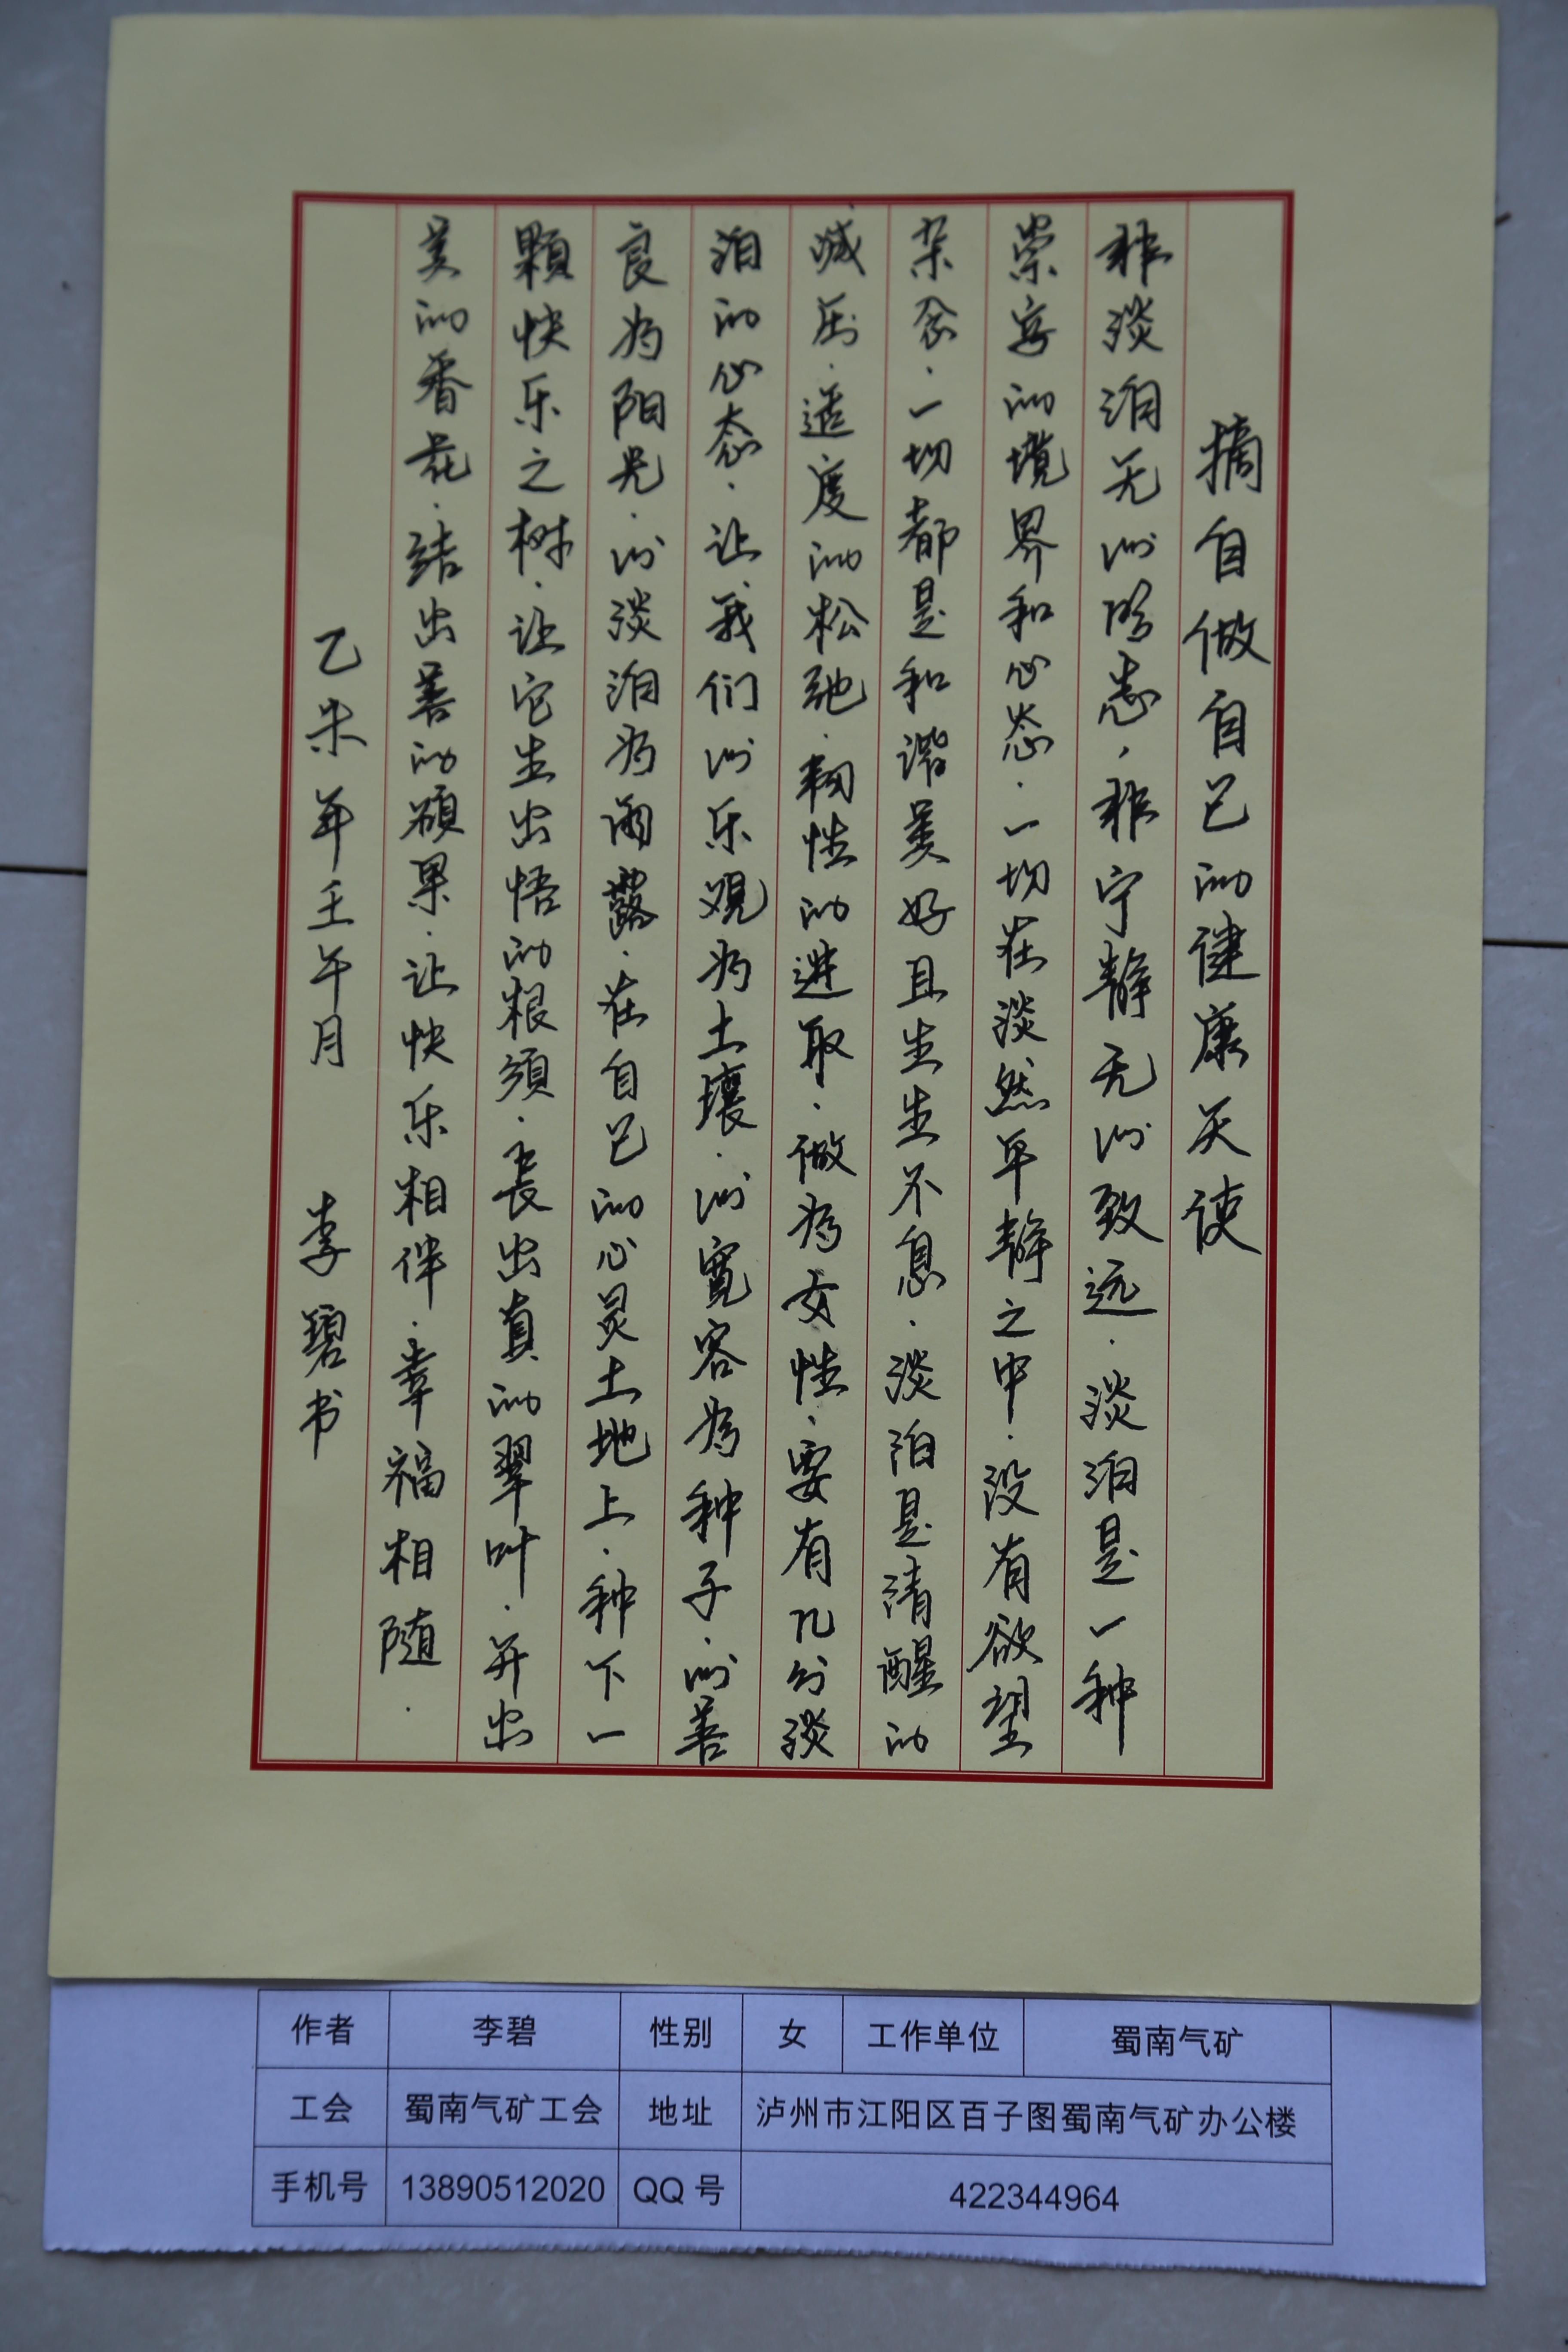 摘自做自己的健康天使
非淡泊无以明志,非宁静无以致远.淡泊是一种
崇高的境界和心态.一切在淡然平静之中.没有欲望
杂念.一切都是和谐美好且生生不息.淡泊是清醒的
减压.适度的松弛.韧性的进取.做为女性.要有几分淡
泊的心态.让我们以乐观为土壤.以宽容为种子.以善
良为阳光.以淡泊为雨露.在自己的心灵土地上.种下一
颗快乐之树.让它生出悟的根须.长出真的翠叶.开出
美的香花.结出善的硕果.让快乐相伴.幸福相随.
乙未年壬午月 李碧书
作者 李碧 性别 女 工作单位 蜀南气矿
工会 蜀南气矿工会 地址 泸州市江阳区百子图蜀南气矿办公楼
手机号 13890512020 QQ号 422344964